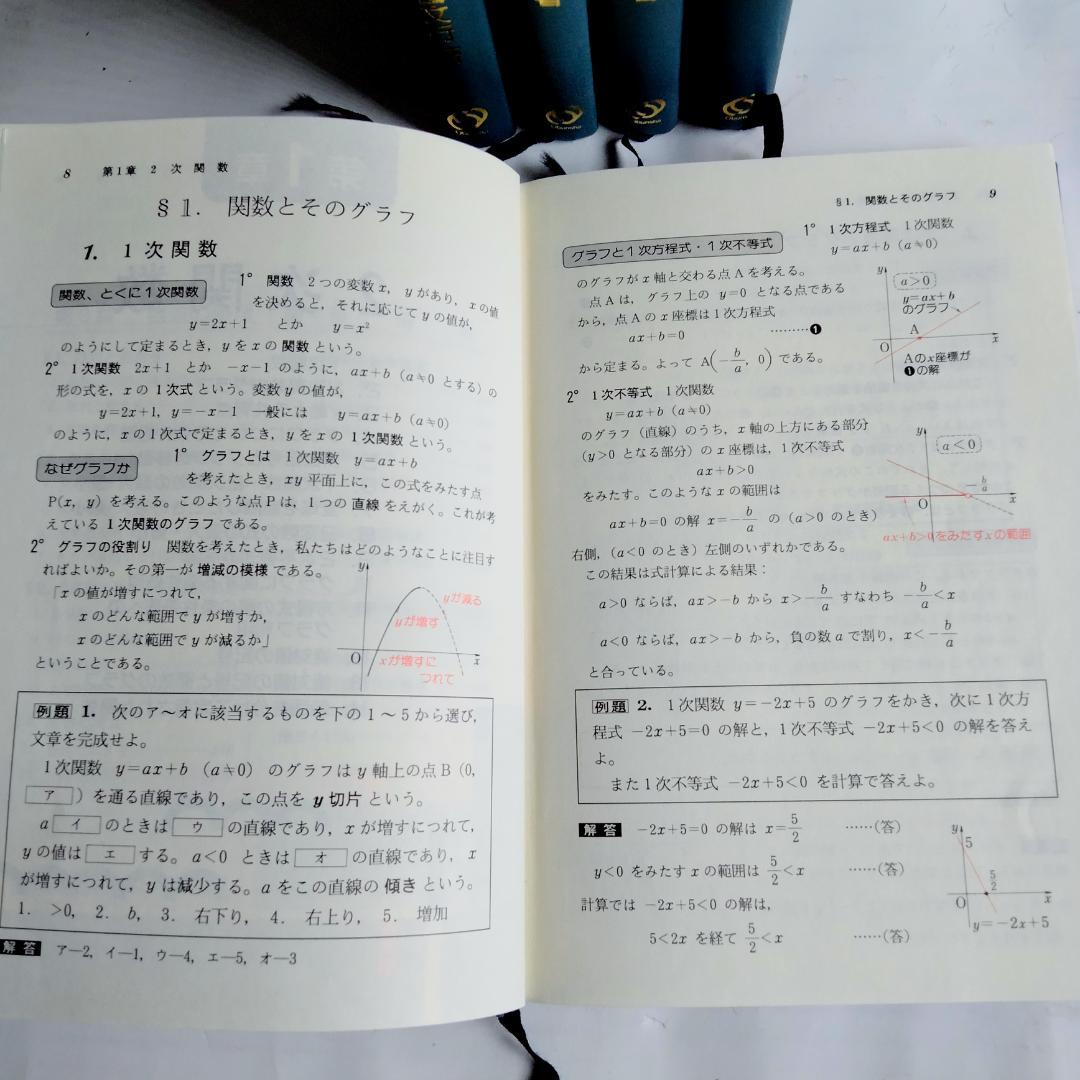 Obunsha
Obunsha
Obunsha
Obunsha
8 第1章 2次関数
§1. 関数とそのグラフ
1. 1次関数
関数、とくに1次関数
1° 関数 2つの変数x, yがあり, xの値
を決めると, それに応じてyの値が,
y=2x+1 とか y=x²
のようにして定まるとき, yをxの関数という。
2° 1次関数 2x+1 とか -x-1 のように, ax+b (a≠0 とする) の
形の式を, xの1次式という。変数yの値が,
y=2x+1, y=-x-1 一般には y=ax+b (a≠0)
のように, xの1次式で定まるとき, yをxの1次関数という。
なぜグラフか
1° グラフとは 1次関数 y=ax+b
を考えたとき, xy平面上に, この式をみたす点
P(x, y) を考える。このような点Pは, 1つの直線をえがく。これが考
えている1次関数のグラフである。
2° グラフの役割り 関数を考えたとき, 私たちはどのようなことに注目す
ればよいか。その第一が増減の模様である。
「xの値が増すにつれて,
xのどんな範囲でyが増すか,
xのどんな範囲でyが減るか」
ということである。
y
yが減る
yが増す
O
xが増すに
つれて
x
例題 1. 次のア〜オに該当するものを下の1〜5から選び,
文章を完成せよ。
1次関数 y=ax+b (a≠0) のグラフはy軸上の点B(0,
ア) を通る直線であり, この点をy切片という。
a イ のときは ウ の直線であり, xが増すにつれて,
yの値は エ する。a<0 ときは オ の直線であり, x
が増すにつれて, yは減少する。aをこの直線の傾きという。
1. >0, 2. b, 3. 右下り, 4. 右上り, 5. 増加
解答 ア—2, イ—1, ウ—4, エ—5, オ—3
§1. 関数とそのグラフ 9
グラフと1次方程式・1次不等式
1° 1次方程式 1次関数
y=ax+b (a≠0)
のグラフがx軸と交わる点Aを考える。
点Aは, グラフ上の y=0 となる点である
から, 点Aのx座標は1次方程式
ax+b=0 ………❶
から定まる。よって A(-b/a, 0) である。
y
a>0
y=ax+b
のグラフ
A
O
x
Aのx座標が
❶の解
2° 1次不等式 1次関数
y=ax+b (a≠0)
のグラフ (直線) のうち, x軸の上方にある部分
(y>0 となる部分) のx座標は, 1次不等式
ax+b>0
をみたす。このようなxの範囲は
ax+b=0 の解 x=-b/a の (a>0 のとき)
右側, (a<0 のとき) 左側のいずれかである。
y
a<0
-b/a
O
x
ax+b>0をみたすxの範囲
この結果は式計算による結果：
a>0 ならば, ax>-b から x>-b/a すなわち -b/a<x
a<0 ならば, ax>-b から, 負の数aで割り, x<-b/a
と合っている。
例題 2. 1次関数 y=-2x+5 のグラフをかき, 次に1次方
程式 -2x+5=0 の解と, 1次不等式 -2x+5<0 の解を答え
よ。
また1次不等式 -2x+5<0 を計算で答えよ。
解答 -2x+5=0 の解は x=5/2 ……(答)
y<0 をみたすxの範囲は 5/2<x ……(答)
計算では -2x+5<0 の解は,
5<2x を経て 5/2<x ……(答)
y
5
5/2
O
x
y=-2x+5